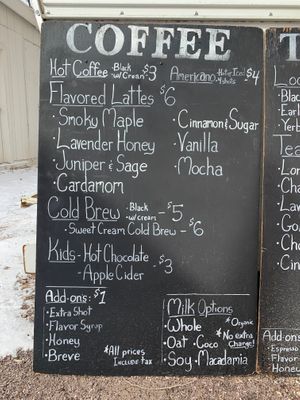 COFFEE
Hot Coffee -Black -w/cream $3
Americano -Hot or Iced -4 shots $4
Flavored Lattes $6
·Smoky Maple
·Lavender Honey
·Juniper & Sage
·Cardamom
·Cinnamon & Sugar
·Vanilla
·Mocha
Cold Brew -Black -w/cream - $5
·Sweet Cream Cold Brew - $6
Kids - Hot Chocolate
- Apple Cider - $3
Add-ons: $1
·Extra Shot
·Flavor Syrup
·Honey
·Breve
*All prices
Include tax
Milk Options
·Whole *Organic
·Oat ·Coco
·Soy ·Macadamia
*No extra
Charge!
T
Add-ons: